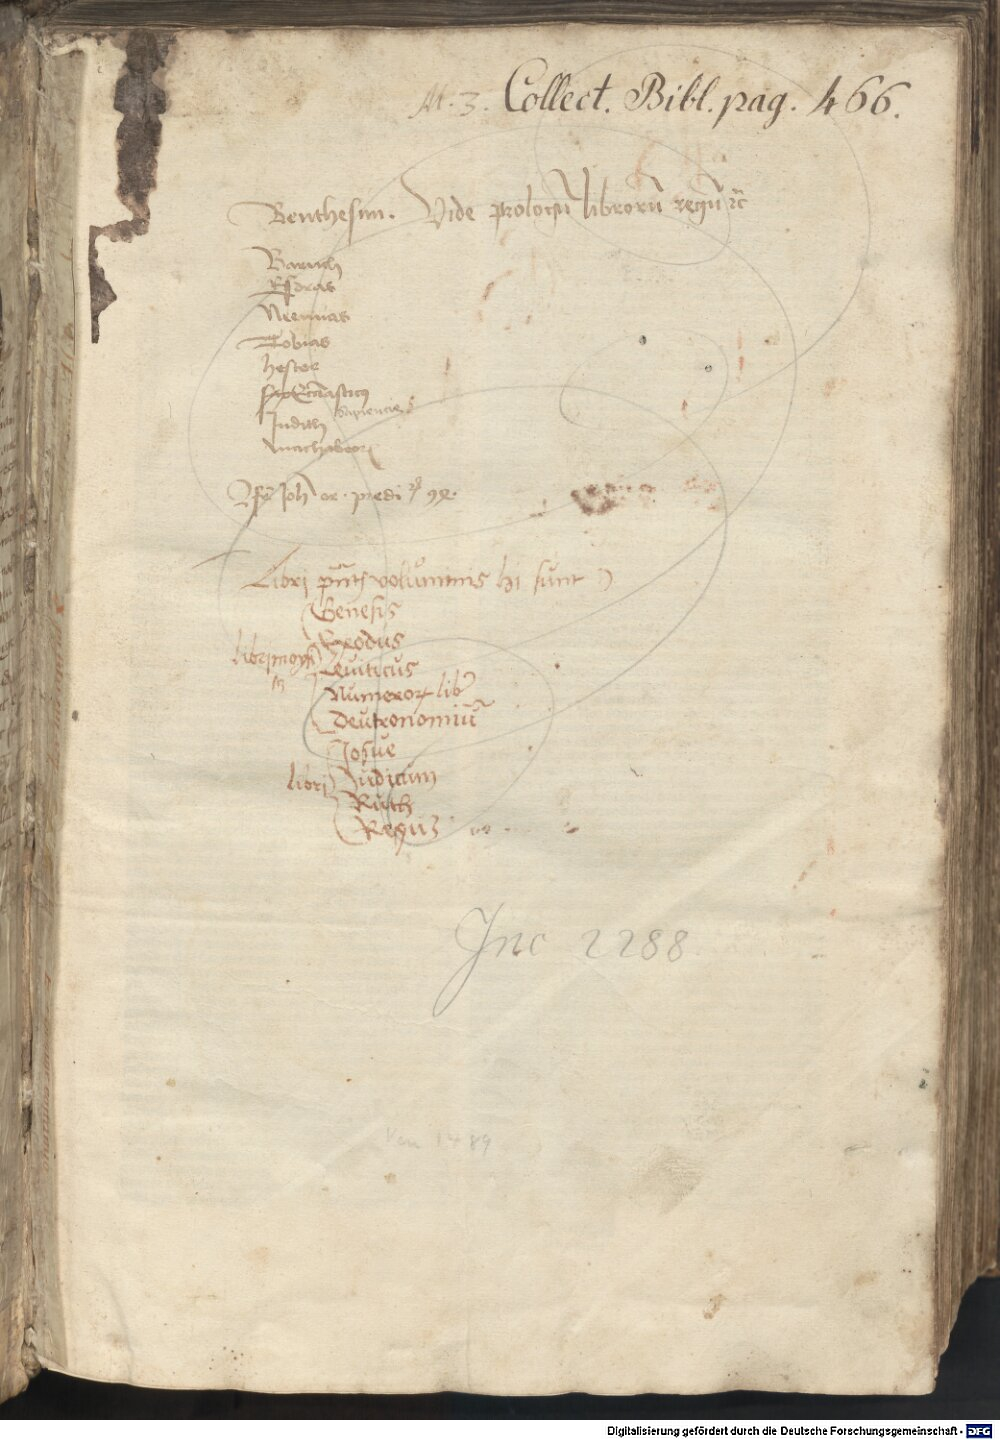 M. 3. Collect. Bibl. pag. 466.
Benthesim. Vide prologū librorū regū
Baruch
Esdras
Neemias
Tobias
hester
Eccl̄iasticus
Sapiencie
Judith
machabeorꝝ
Joh or. predi
Libri pn̄tis voluminis hi sunt
Genesis
Exodus
libri moysi
Leviticus
Numerorꝝ liber
Deutronomiū
Josue
libri Judicum
Ruth
Regū
Inc 2288
Ven 1489
Digitalisierung gefördert durch die Deutsche Forschungsgemeinschaft - DFG